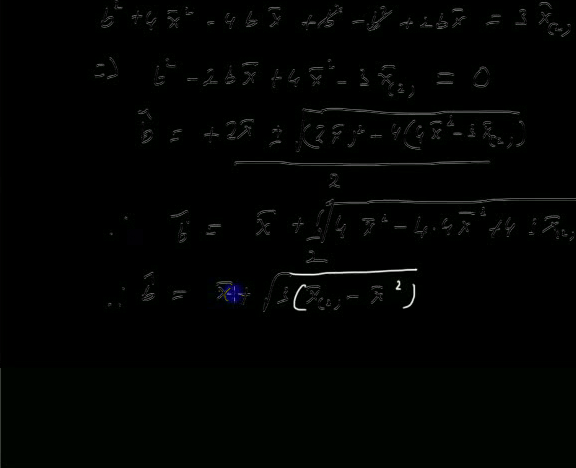 b² + 4x̄² - 4bx̄ + b² - b² + 2bx̄ = 3x̄₍₂₎
⇒ b² - 2bx̄ + 4x̄² - 3x̄₍₂₎ = 0
b̂ = +2x̄ ± √((2x̄)² - 4(4x̄² - 3x̄₍₂₎)) / 2
∴ b̂ = x̄ + ½√(4x̄² - 4·4x̄² + 4·3x̄₍₂₎
∴ b̂ = x̄ + √(3(x̄₍₂₎ - x̄²))